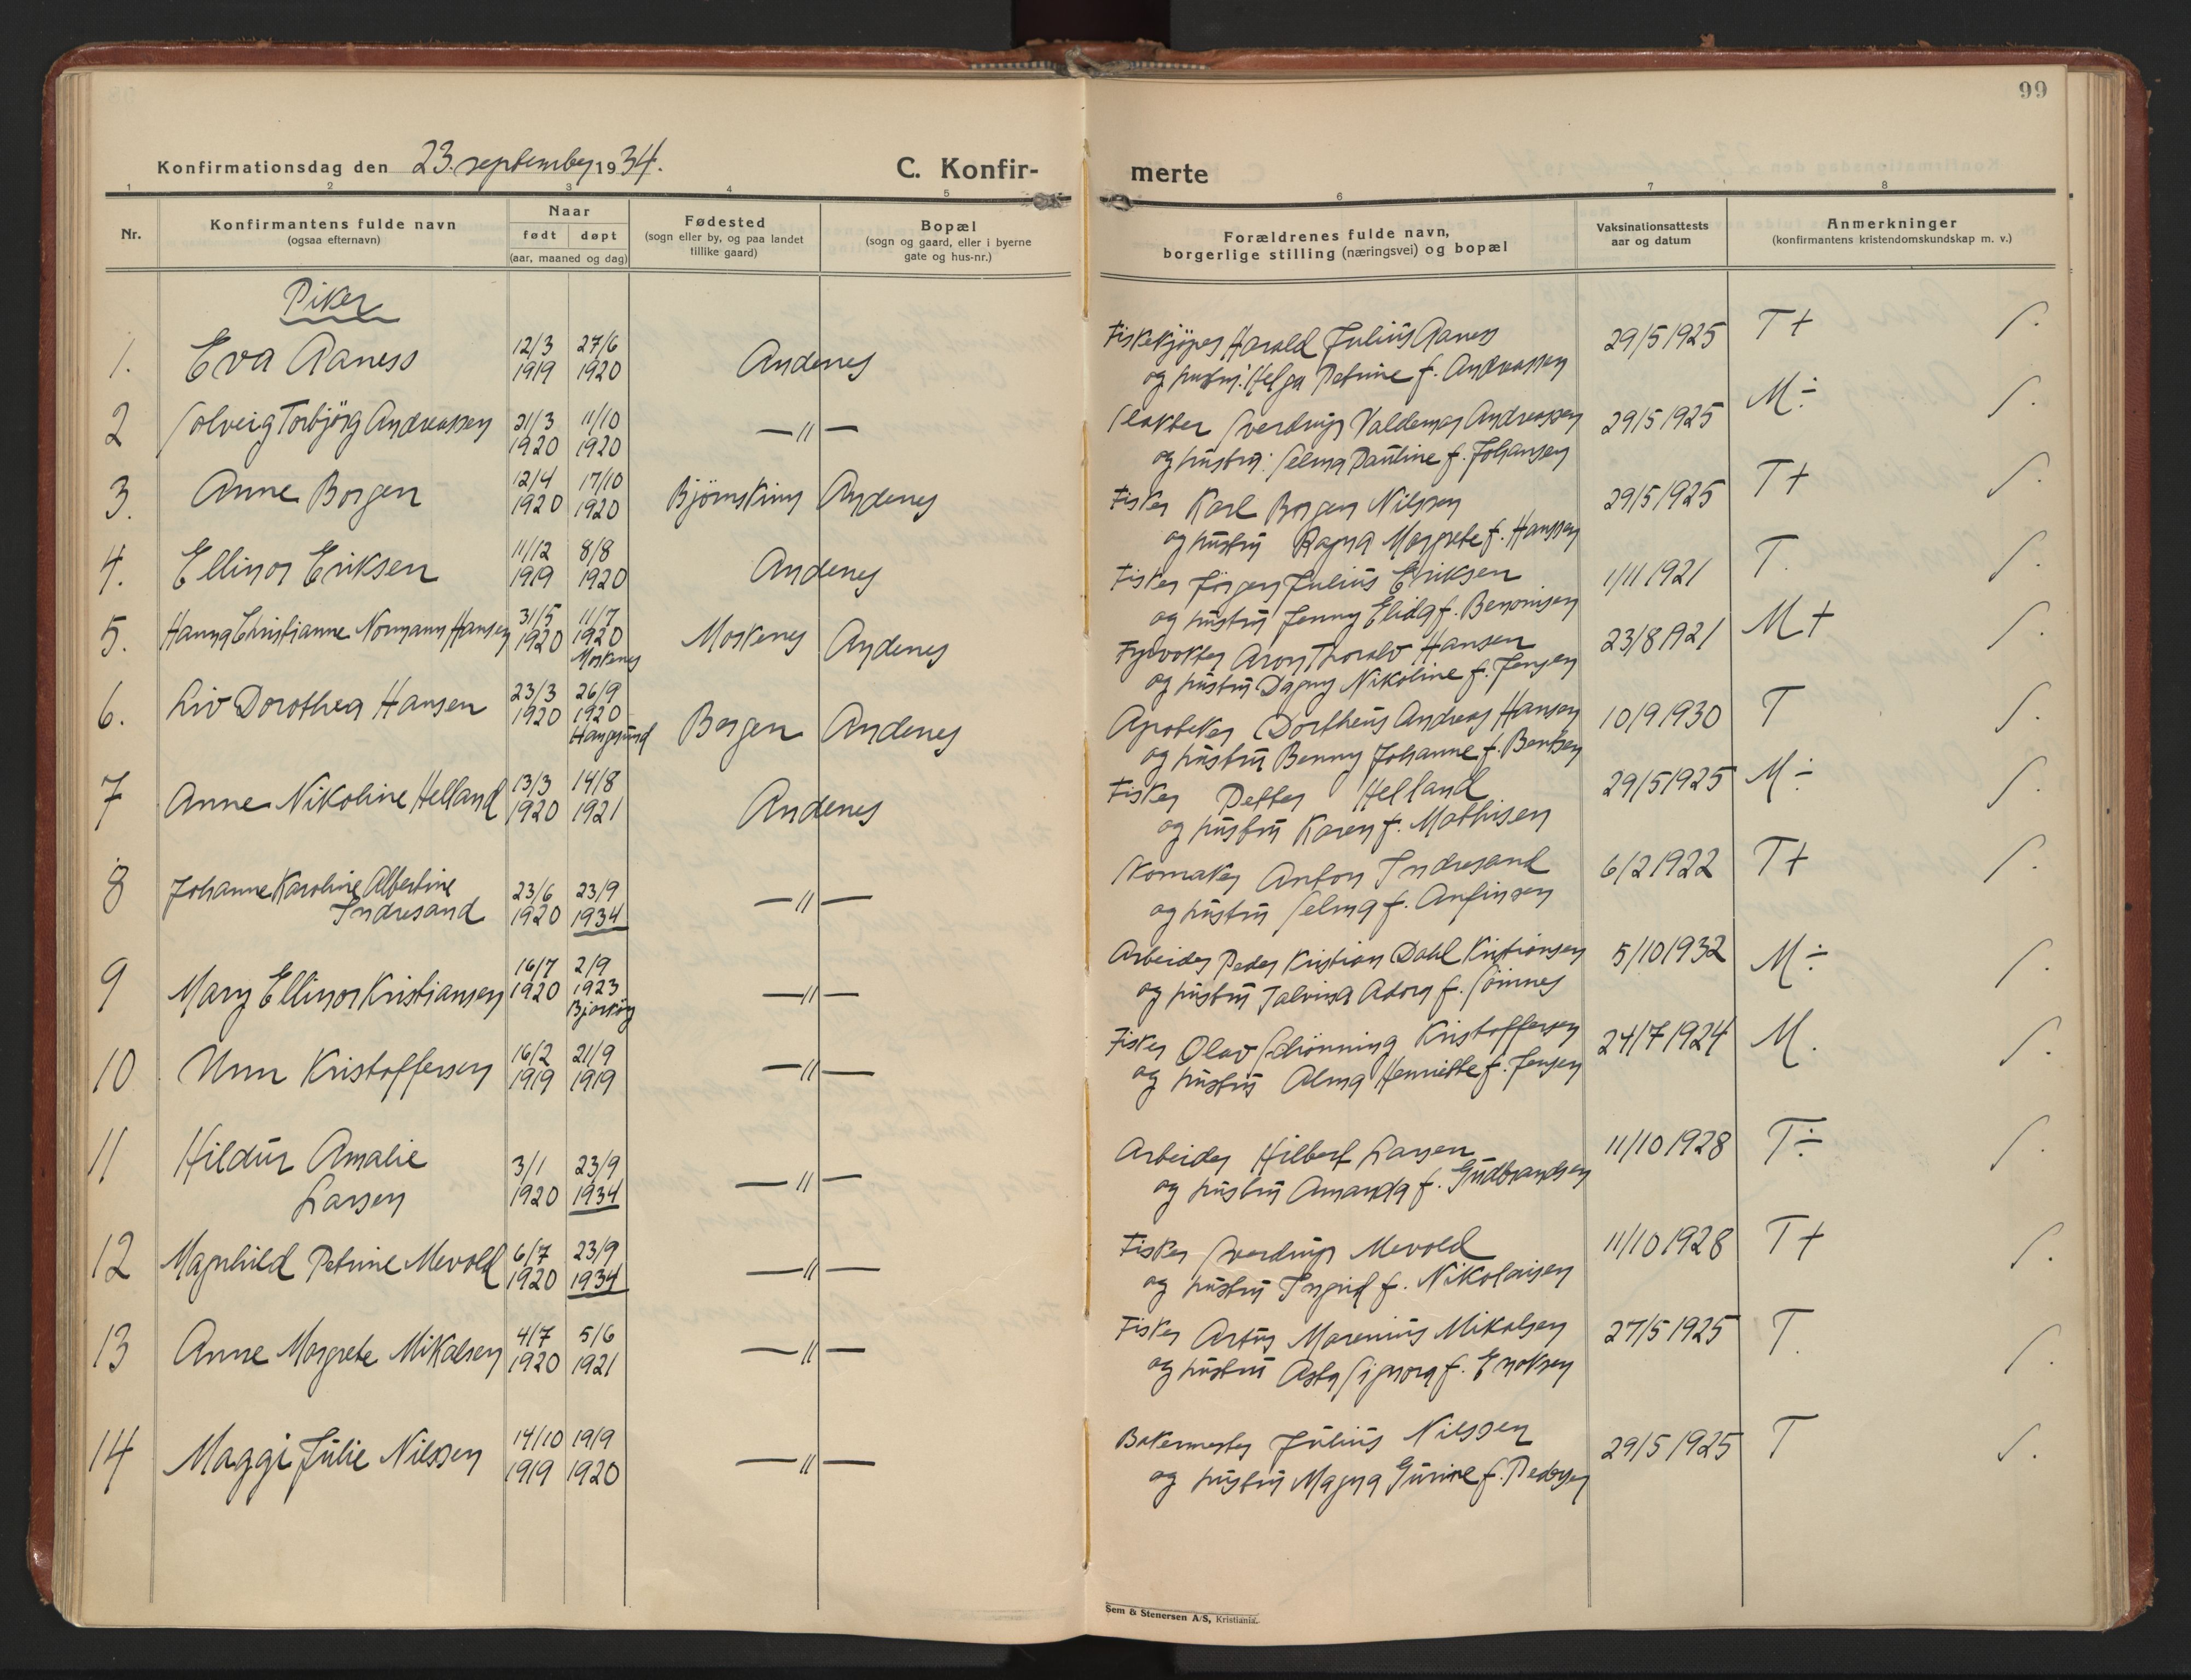 99
Konfirmationsdag den 23. september 1934.
C. Konfir-
merte
1 2 3 4 5 6 7 8
Nr.
Konfirmantens fulde navn
(ogsaa efternavn)
Naar
født døpt
(aar, maaned og dag)
Fødested
(sogn eller by, og paa landet
tillike gaard)
Bopæl
(sogn og gaard, eller i byerne
gate og hus-nr.)
Forældrenes fulde navn,
borgerlige stilling (næringsvei) og bopæl
Vaksinationsattests
aar og datum
Anmerkninger
(konfirmantens kristendomskundskap m. v.)
Piker
1. Eva Aaness 12/3 1919 27/6 1920 Andenes
Fiskekjøper Harald Julius Aaness
og hustru: Helga Petrine f. Andreassen
29/5 1925 T+ S.
2 Solveig Torbjörg Andreassen 21/3 1920 11/10 1920 —〃—
Slakter Sverdrup Valdemar Andreassen
og hustru: Selma Pauline f. Johansen
29/5 1925 M÷ S.
3. Anne Borgen 12/4 1920 17/10 1920 Bjørnskinn Andenes
Fisker Karl Borgen Nilssen
og hustru Ragna Margrete f. Hanssen
29/5 1925 T+ S.
4. Ellinor Eriksen 11/12 1919 8/8 1920 Andenes
Fisker Jörgen Julius Eriksen
og hustru Jenny Elida f. Benonisen
1/11 1921 T. S.
5. Hanna Christianne Normann Hansen 31/5 1920 11/7 1920 Moskenes Moskenes Andenes
Fyrvokter Aron Thoralv Hansen
og hustru Dagny Nikoline f. Jensen
23/8 1921 M+ S.
6. Liv Dorothea Hansen 23/3 1920 26/9 1920 Haugesund Bergen Andenes
Apoteker Dortheus Andreas Hansen
og hustru Benny Johanne f. Bentsen
10/9 1930 T S.
7 Anne Nikoline Helland 13/3 1920 14/8 1921 Andenes
Fisker Petter Helland
og hustru Karen f. Mathisen
29/5 1925 M÷ S.
8 Johanne Karoline Albertine
Indresand 23/6 1920 23/9 1934 —〃—
Skomaker Anton Indresand
og hustru Selma f. Anfinsen
6/2 1922 T+ S.
9 Mary Ellinor Kristiansen 16/7 1920 2/9 1923 —〃—
Arbeider Peder Kristian Dahl Kristiansen
og hustru Jalvina Adora f.
5/10 1932 M÷ S.
10 Unn Kristoffersen 16/2 1919 21/9 1919 —〃—
Fisker Olav Schönning Kristoffersen
og hustru Alma Henriette f. Jensen
24/7 1924 M. S.
11 Hildur Amalie
Larsen 3/1 1920 23/9 1934 —〃—
Arbeider Hilbert Larsen
og hustru Amanda f. Gudbrandsen
11/10 1928 T÷ S.
12 Magnhild Petrine Mevold 6/7 1920 23/9 1934 —〃—
Fisker Sverdrup Mevold
og hustru Ingrid f. Nikolaisen
11/10 1928 T+ S.
13 Anne Margrete Mikalsen 4/7 1920 5/6 1921 —〃—
Fisker Artur Marenius Mikalsen
og hustru Asta Signora f. Enoksen
27/5 1925 T. S.
14 Maggi Julie Nilssen 14/10 1919 19/9 1920 —〃—
Bakermester Julius Nilssen
og hustru Magna Gurine f. Pedersen
29/5 1925 T S.
Sem & Stenersen A/S, Kristiania.